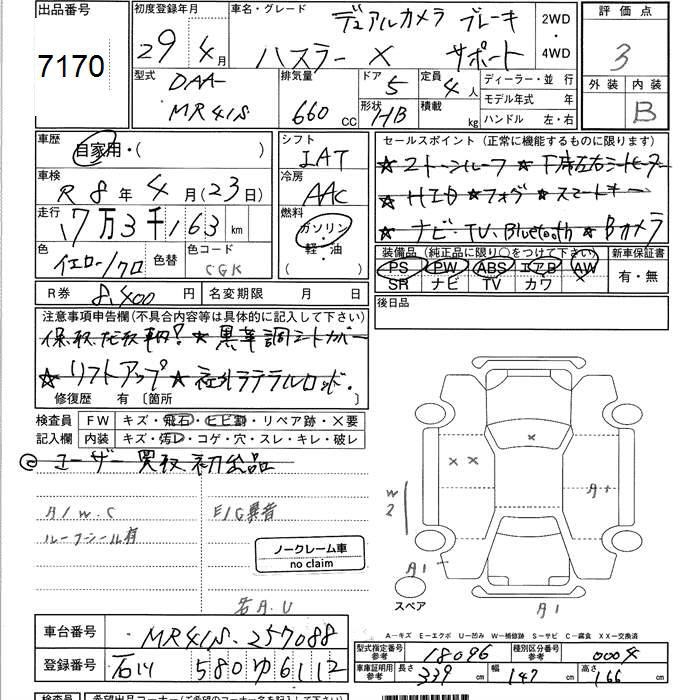 出品番号
7170
初度登録年月
29年4月
車名・グレード
デュアルカメラ ブレーキ
ハスラー X サポート
2WD
・
4WD
評価点
3
外装 内装
B
型式
DAA-
MR41S
排気量
660cc
ドア
5
定員
4人
形状
HB
積載
kg
ディーラー・並 行
モデル年式 年
ハンドル 左・右
車歴
自家用・( )
車検
R8年4月(23日)
走行
17万3千163km
色
イエロー/クロ
色替
色コード
CGK
シフト
IAT
冷房
AAC
燃料
ガソリン
軽・油
( )
セールスポイント (正常に機能するものに限ります)
★2トーンルーフ ★下席左右シートヒーター
★HID ★フォグ ★スマートキー
★ナビ・TV・Bluetooth ★Bカメラ
装備品 (純正品に限り○をつけて下さい)
PS PW ABS エアB AW
SR ナビ TV カワ
新車保証書
有・無
R券 8,400円
名変期限 月 日
後日品
注意事項申告欄(不具合内容等は具体的に記入して下さい)
★黒革調シートカバー
★リフトアップ ★社外ラテラルロッド.
修復歴 有〔箇所 〕
検査員 FW キズ・飛石・ヒビ割・リペア跡・X要
記入欄 内装 キズ・汚レ・コゲ・穴・スレ・キレ・破レ
◎ユーザー買取初出品
A/W.C
E/G異音
ルーフシール有
ノークレーム車
no claim
A.U
W2
A1
A1
A1
スペア
A-キズ E-エクボ U-凹み W-補修跡 S-サビ C-腐食 XX-交換済
車台番号 MR41S-257088
登録番号 石川 580 ゆ 6112
型式指定番号
参考
18096
種別区分番号
参考
0004
車庫証明用
参考
長さ 339cm 幅 147cm 高さ 166cm
検査員 希望出品コーナー(ご希望のコーナー名を記入して下さい)